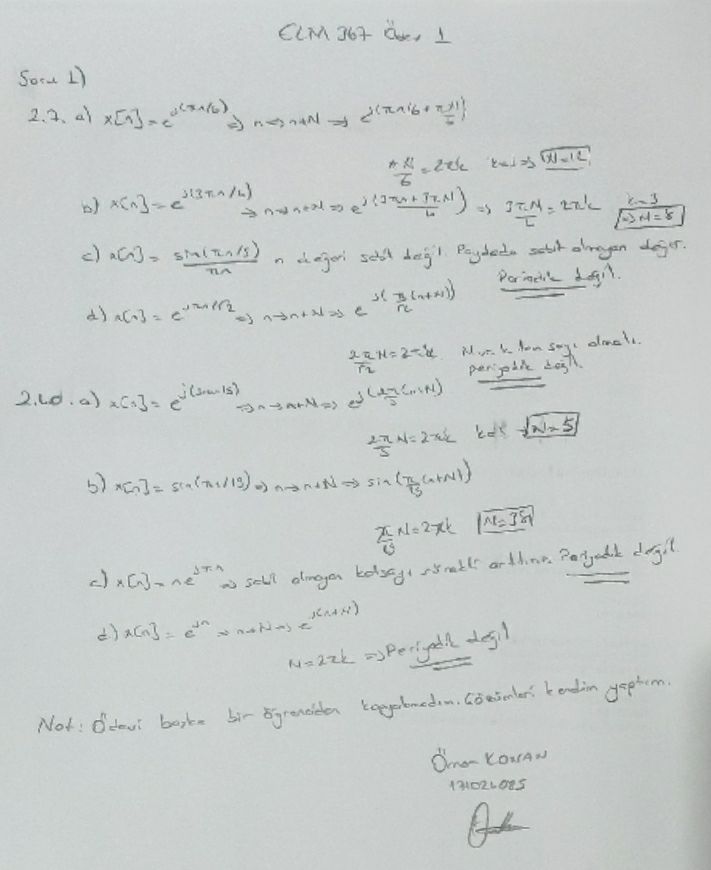 ELM 367 Ödev 1
Soru 1)
2.7. a) x[n] = e^{j(πn/6)} => n→n+N => e^{j(πn/6 + πN/6)}
πN/6 = 2πk k=1 => N=12
b) x[n] = e^{j(3πn/4)} → n→n+N => e^{j(3πn+3πN/4)} => 3πN/4 = 2πk k=3 => N=8
c) x[n] = sin(πn/5)/πn n değeri sabit değil. Paydada sabit olmayan değer.
Periodik değil.
d) x[n] = e^{jπn/√2} => n→n+N => e^{j(π/√2(n+N))}
2π/√2 N = 2πk N ve k tam sayı olmalı.
periyodik değil.
a) x[n] = => n→n+N => e^{j(2π/5(n+N))}
2π/5 N = 2πk N=5
b) x[n] = sin(πn/19) => n→n+N => sin(π/19(n+N))
π/19 N = 2πk N=38
c) x[n] = ne^{jπn} => sabit olmayan katsayı sürekli arttırır. Periyodik değil.
d) x[n] = e^{jn} => n→n+N => e^{j(n+N)}
N=2πk => Periyodik değil
Not: Ödevi başka bir öğrenciden kopyalamadım. Çözümleri kendim yaptım.